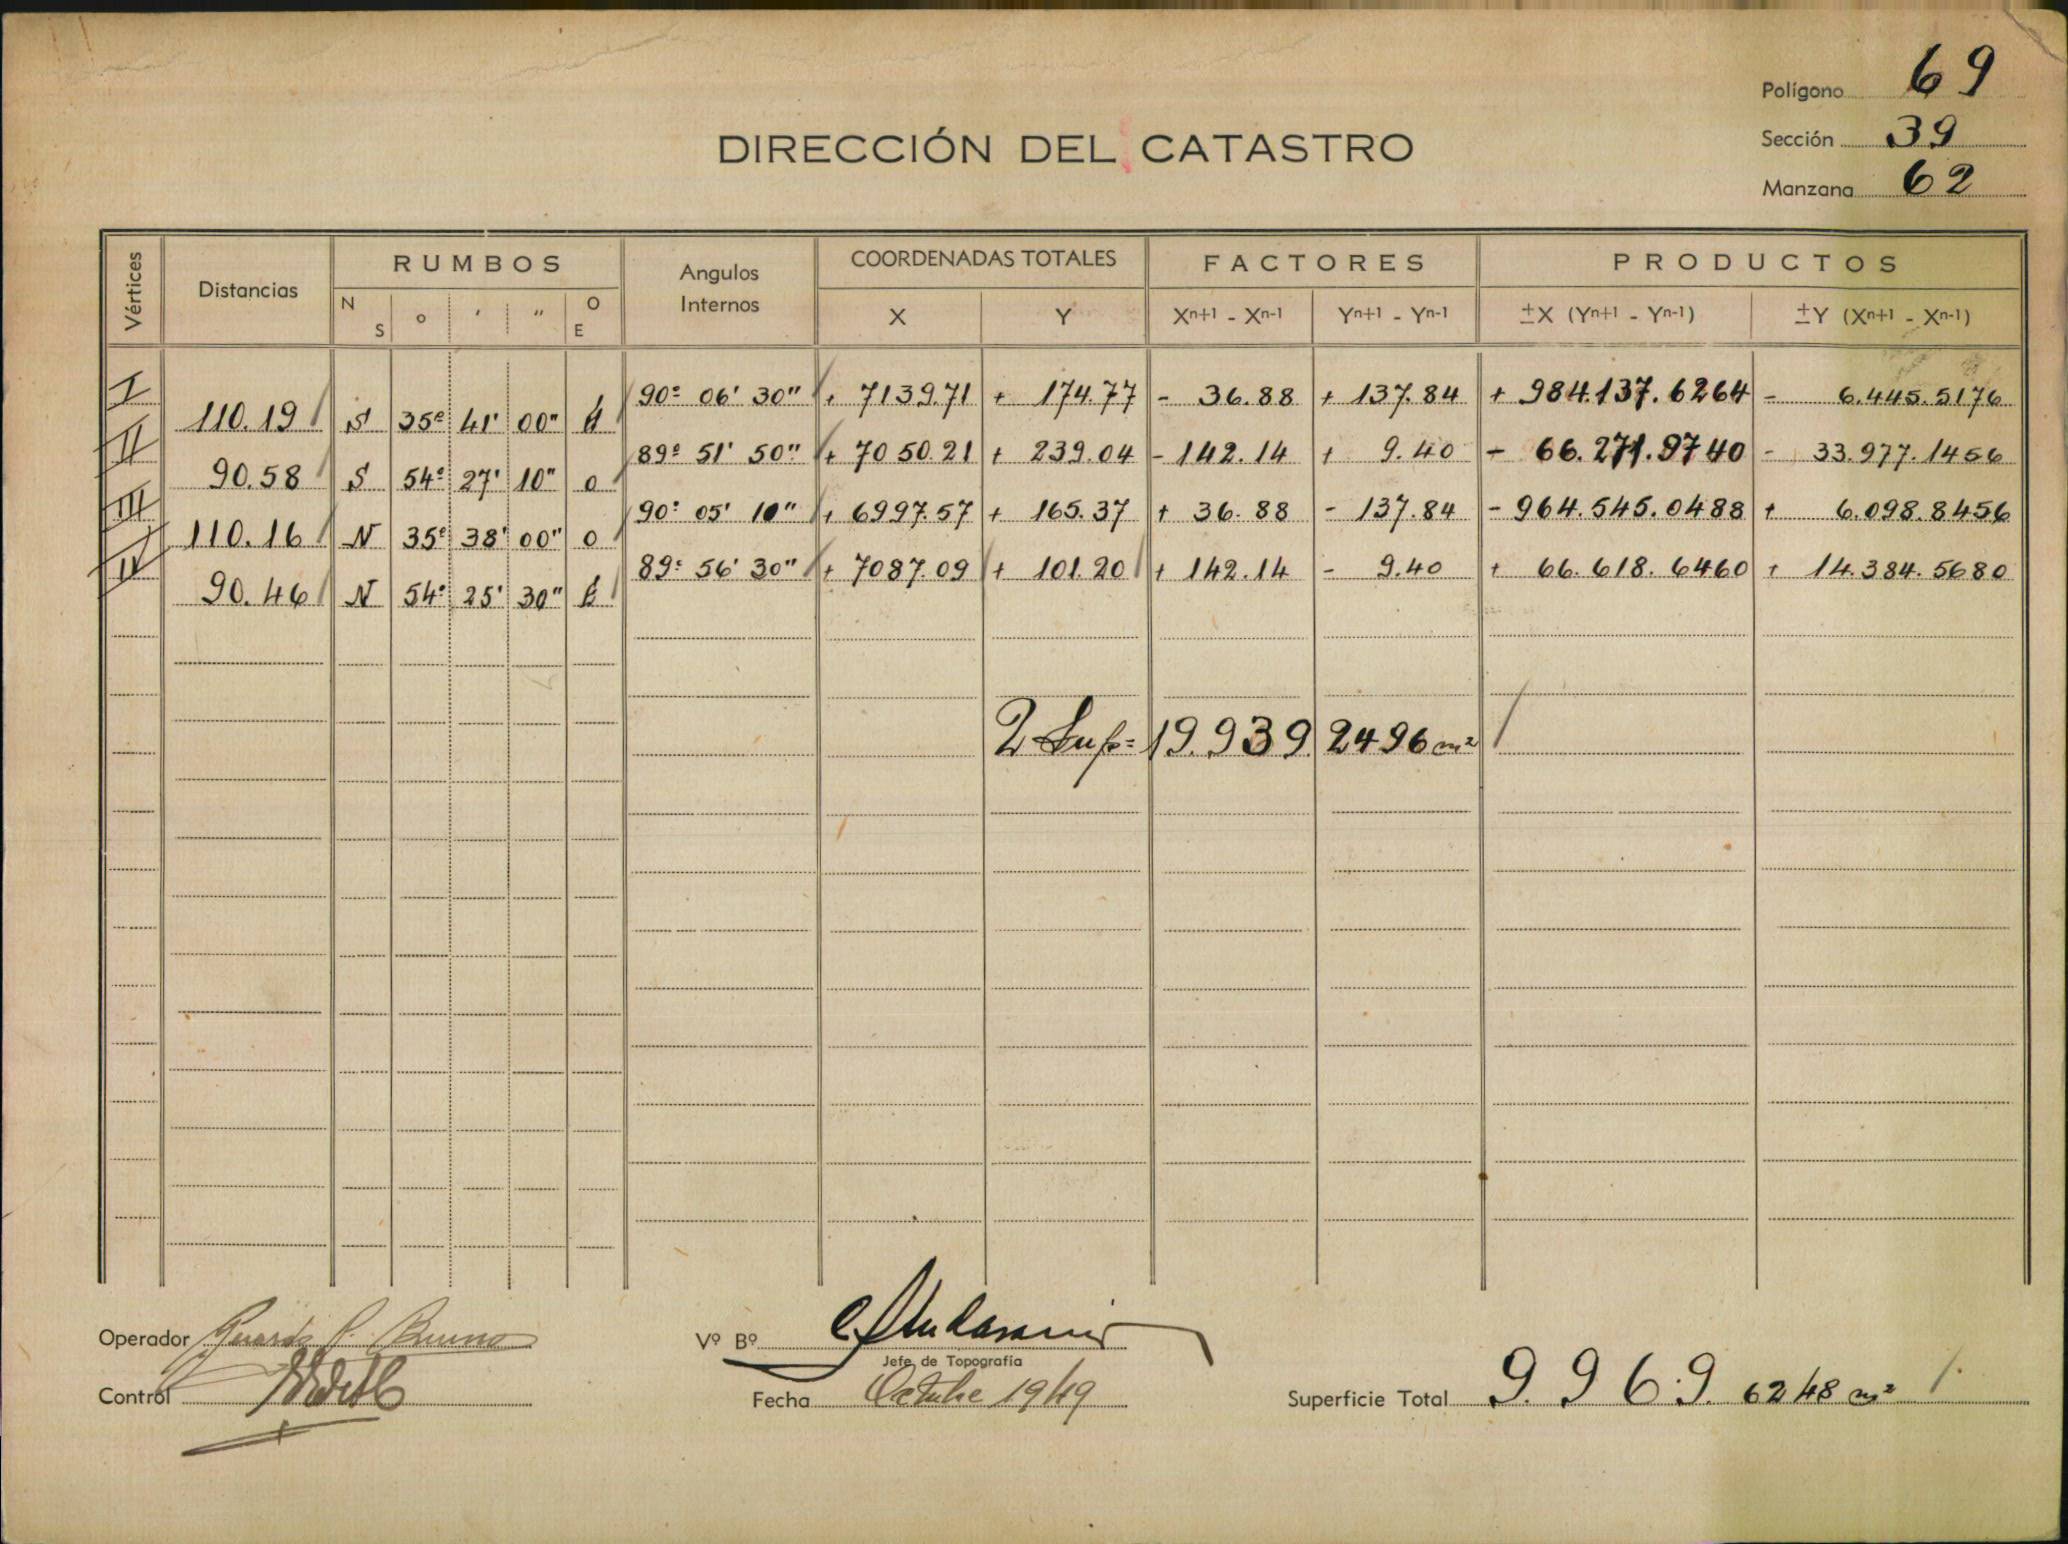 Polígono 69
DIRECCIÓN DEL CATASTRO
Sección 39
Manzana 62
Vértices Distancias RUMBOS Angulos Internos COORDENADAS TOTALES FACTORES PRODUCTOS
N S o ' " O E X Y Xn+1 - Xn-1 Yn+1 - Yn-1 ±X (Yn+1 - Yn-1) ±Y (Xn+1 - Xn-1)
I 90º 06' 30" + 7139.71 + 174.77 - 36.88 + 137.84 + 984.137.6264 - 6.445.5176
110.19 S 35º 41' 00"
II 89º 51' 50" + 7050.21 + 239.04 - 142.14 + 9.40 + 66.271.9740 - 33.977.1456
90.58 S 54º 27' 10" O
III 90º 05' 10" + 6997.57 + 165.37 + 36.88 - 137.84 - 964.545.0488 + 6.098.8456
110.16 N 35º 38' 00" O
IV 89º 56' 30" + 7087.09 + 101.20 + 142.14 - 9.40 + 66.618.6460 + 14.384.5680
90.46 N 54º 25' 30" E
2 Sup = 19.939.2496 m²
Operador
Vº Bº
Jefe de Topografía
Control
Fecha Octubre 1949
Superficie Total 9.969.6248 m²